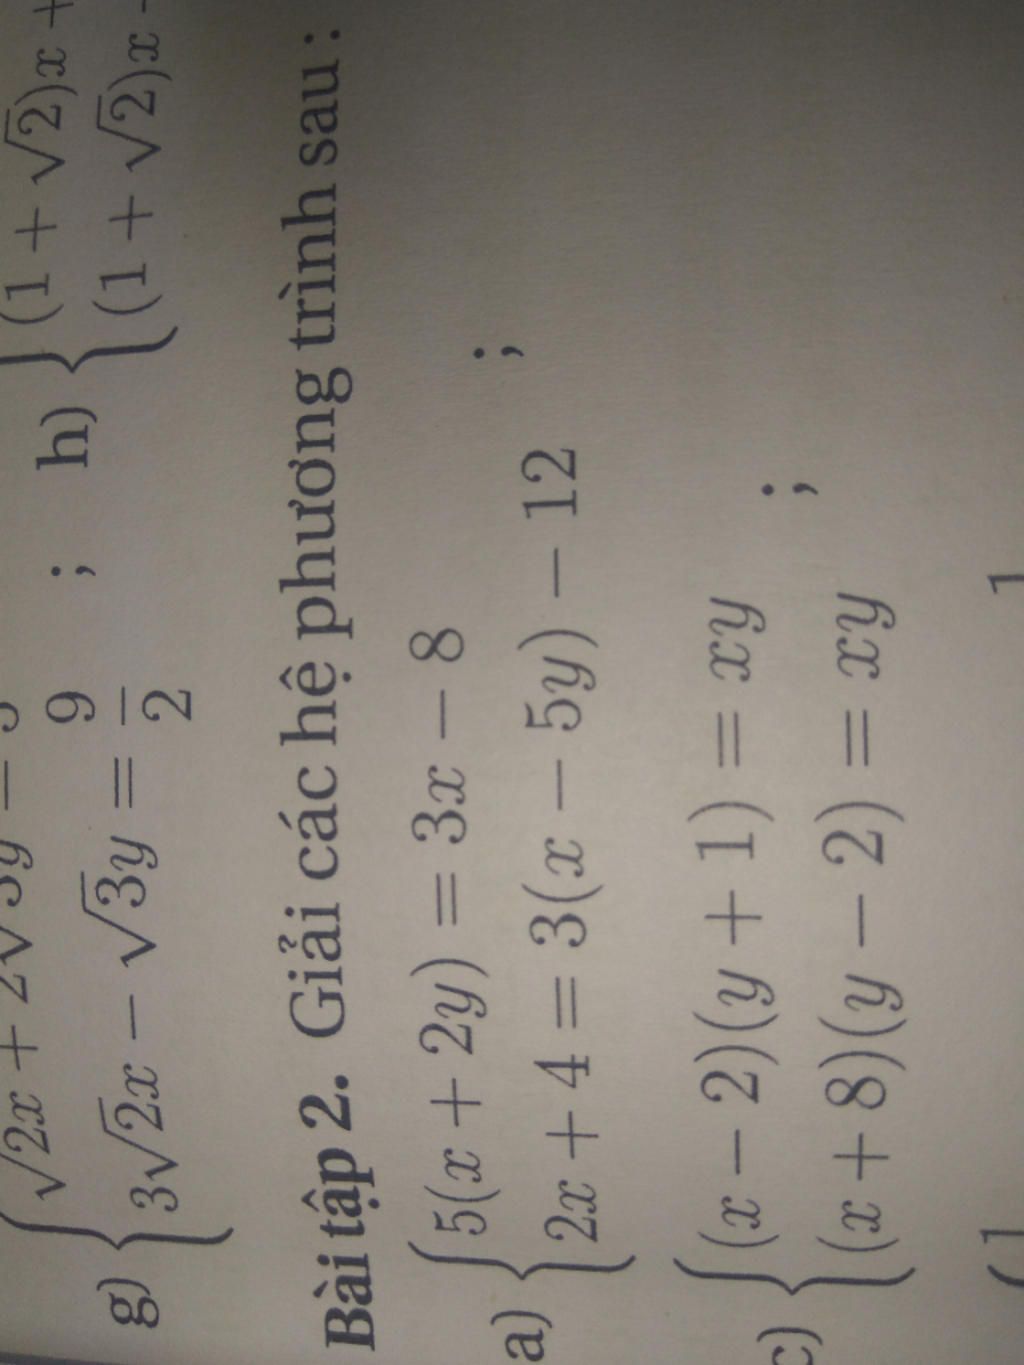 g) { √2x + 2√3y =
3√2x − √3y = 9/2 ;
h) { (1 + √2)x +
(1 + √2)x
Bài tập 2. Giải các hệ phương trình sau :
a) { 5(x + 2y) = 3x − 8
2x + 4 = 3(x − 5y) − 12 ;
c) { (x − 2)(y + 1) = xy
(x + 8)(y − 2) = xy ;